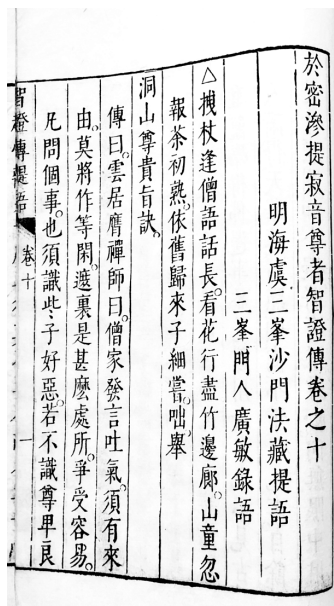 於密滲提寂音尊者智證傳卷之十
明海虞三峯沙門法藏提語
三峯門人廣敏錄語
△拽杖逢僧語話長。看花行盡竹邊廊。山童忽
報茶初熟。依舊歸來子細嘗。咄。舉
洞山尊貴旨訣。
傳曰。雲居膺禪師曰。僧家發言吐氣。須有來
由。莫將作等閑。遮裏是甚麼處所。爭受容易。
凡問個事。也須識些子好惡。若不識尊卑良
智證傳提語 卷十 一